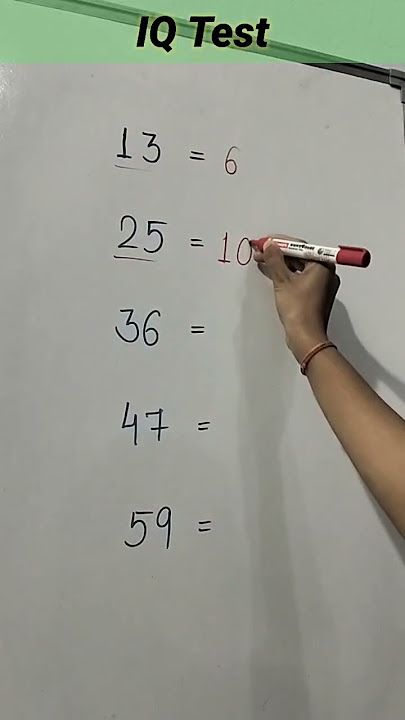 IQ Test
13 = 6
25 = 10
36 =
47 =
59 =